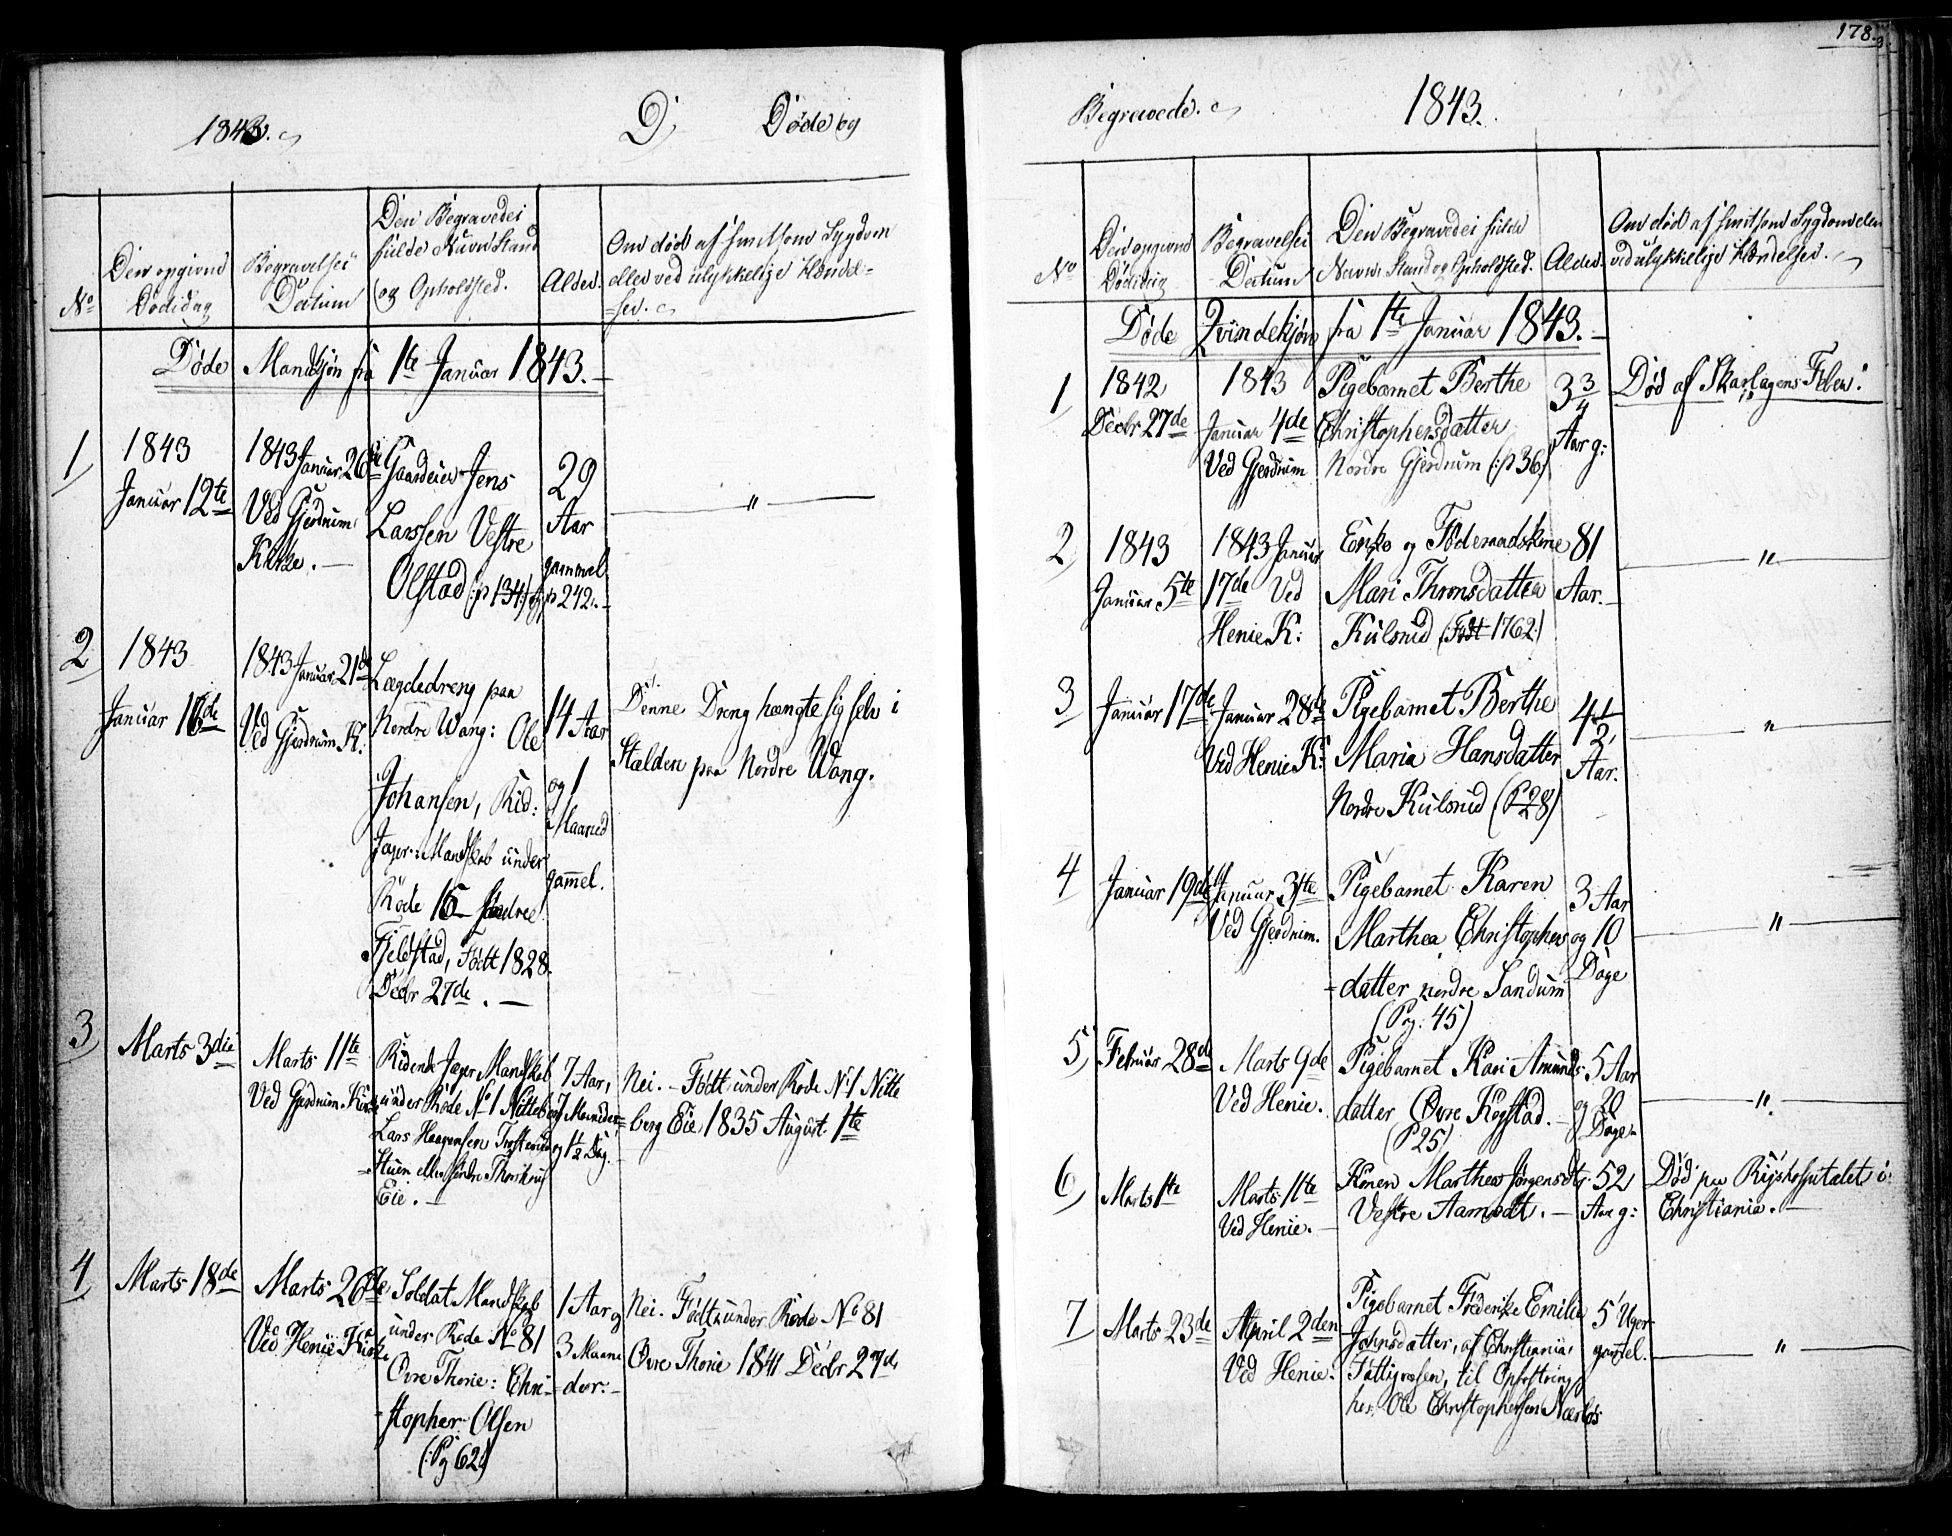 1843.
D, Døde og
No
Den opgivne
Dødsdag
Begravelses
Datum
Den Begravedes
fulde Navn Stand
og Opholdsted.
Alder.
Om død af smitsom Sygdom
eller ved ulykkelige Hændel-
=ser.
Døde Mandkjøn fra 1te Januar 1843.
1,
1843
Januar 12te
1843 Januar 26de
Ved Gjerdrum
Kirke.
Gaardeier Jens
Larssen Vestre
Olstad (:p 134:) og
29
Aar
gammel
p 242.
"
2,
1843
Januar 16de
1843 Januar 21de
Ved Gjerdrum K.
Lægdedreng paa
Nordre Wang: Ole
Johansen, Rid:
Jæger-Mandskab under
Rode 15 Søndre
Fjeldstad, Født 1828.
Decbr 27de.
14 Aar
og 1
Maaned
gamel.
Denne Dreng hængte sig selv i
Stalden paa Nordre Wang.
3,
Marts 3die
Marts 11te
Ved Gjerdrum Kirke
Ridende Jæger Mandskab
under Rode No 1 Nitteberg
Lars Haagensen
Stuen eller søndre
Eie.
7 Aar,
7 Maaneder
og 1/2 Dag.
Nei. - Født under Rode No 1 Nitte
=berg Eie 1835 August 1te
4,
Marts 18de
Marts 26de
Ved Henie Kirke
Soldat Mandskab
under Rode No 81
Øvre Thorie: Chri-
=stopher Olsen
(:Pg 62:)
1 Aar og
3 Maane
=der.
Nei. Født under Rode No 81
Øvre Thorie 1841 Decbr
178.
Begravede.
1843.
No
Den opgivne
Dødsdag
Begravelses
Datum
Den Begravedes fulde
Navn, Stand og Opholdsted.
Alder.
Om død af smitsom Sygdom eller
ved ulykkelige Hændelser.
Døde Qvindekjøn fra 1te Januar 1843.
1,
1842
Decbr 27de
1843
Januar 4de
Ved Gjerdrum
Pigebarnet Berthe
Christophersdatter
Nordre Gjerdrum (:p 36)
3 3/4
Aar g:
Død af Skarlagens Feber.
2,
1843
Januar 5te
1843 Januar
17de Ved
Henie K:
Enke og Føderaadskone
Mari Thronsdatter
Kulsrud (:Født 1762:)
81
Aar.
"
3,
Januar 17de
Januar 28de
Ved Henie K:
Pigebarnet Berthe
Maria Hansdatter
Nordre Kulsrud (P 28)
4 1/2
Aar.
"
4,
Januar 19de
Januar 31te
Ved Gjerdrum.
Pigebarnet Karen
Marthea Christophers
=datter nordre Sandum
(Pg: 45)
3 Aar
og 10
Dage
"
5,
Februar 28de
Marts 9de
Ved Henie.
Pigebarnet Kari Amunds
datter Øvre Kogstad.
(P 25)
5 Aar
og 20
Dage
"
6,
Marts 1te
Marts 11te
Ved Henie.
Konen Marthea Jørgensdtr.
Vestre Aamodt.
52
Aar g:
Død paa Rigshospitalet i
Christiania.
7,
Marts 23de
April 2den
Ved Henie.
Pigebarnet Frederike Emilie
Johnsdatter, af Christiania,
Fattigvæsen, til Opfostring
hos Ole Christophersen
5 Uger
gamel.
"